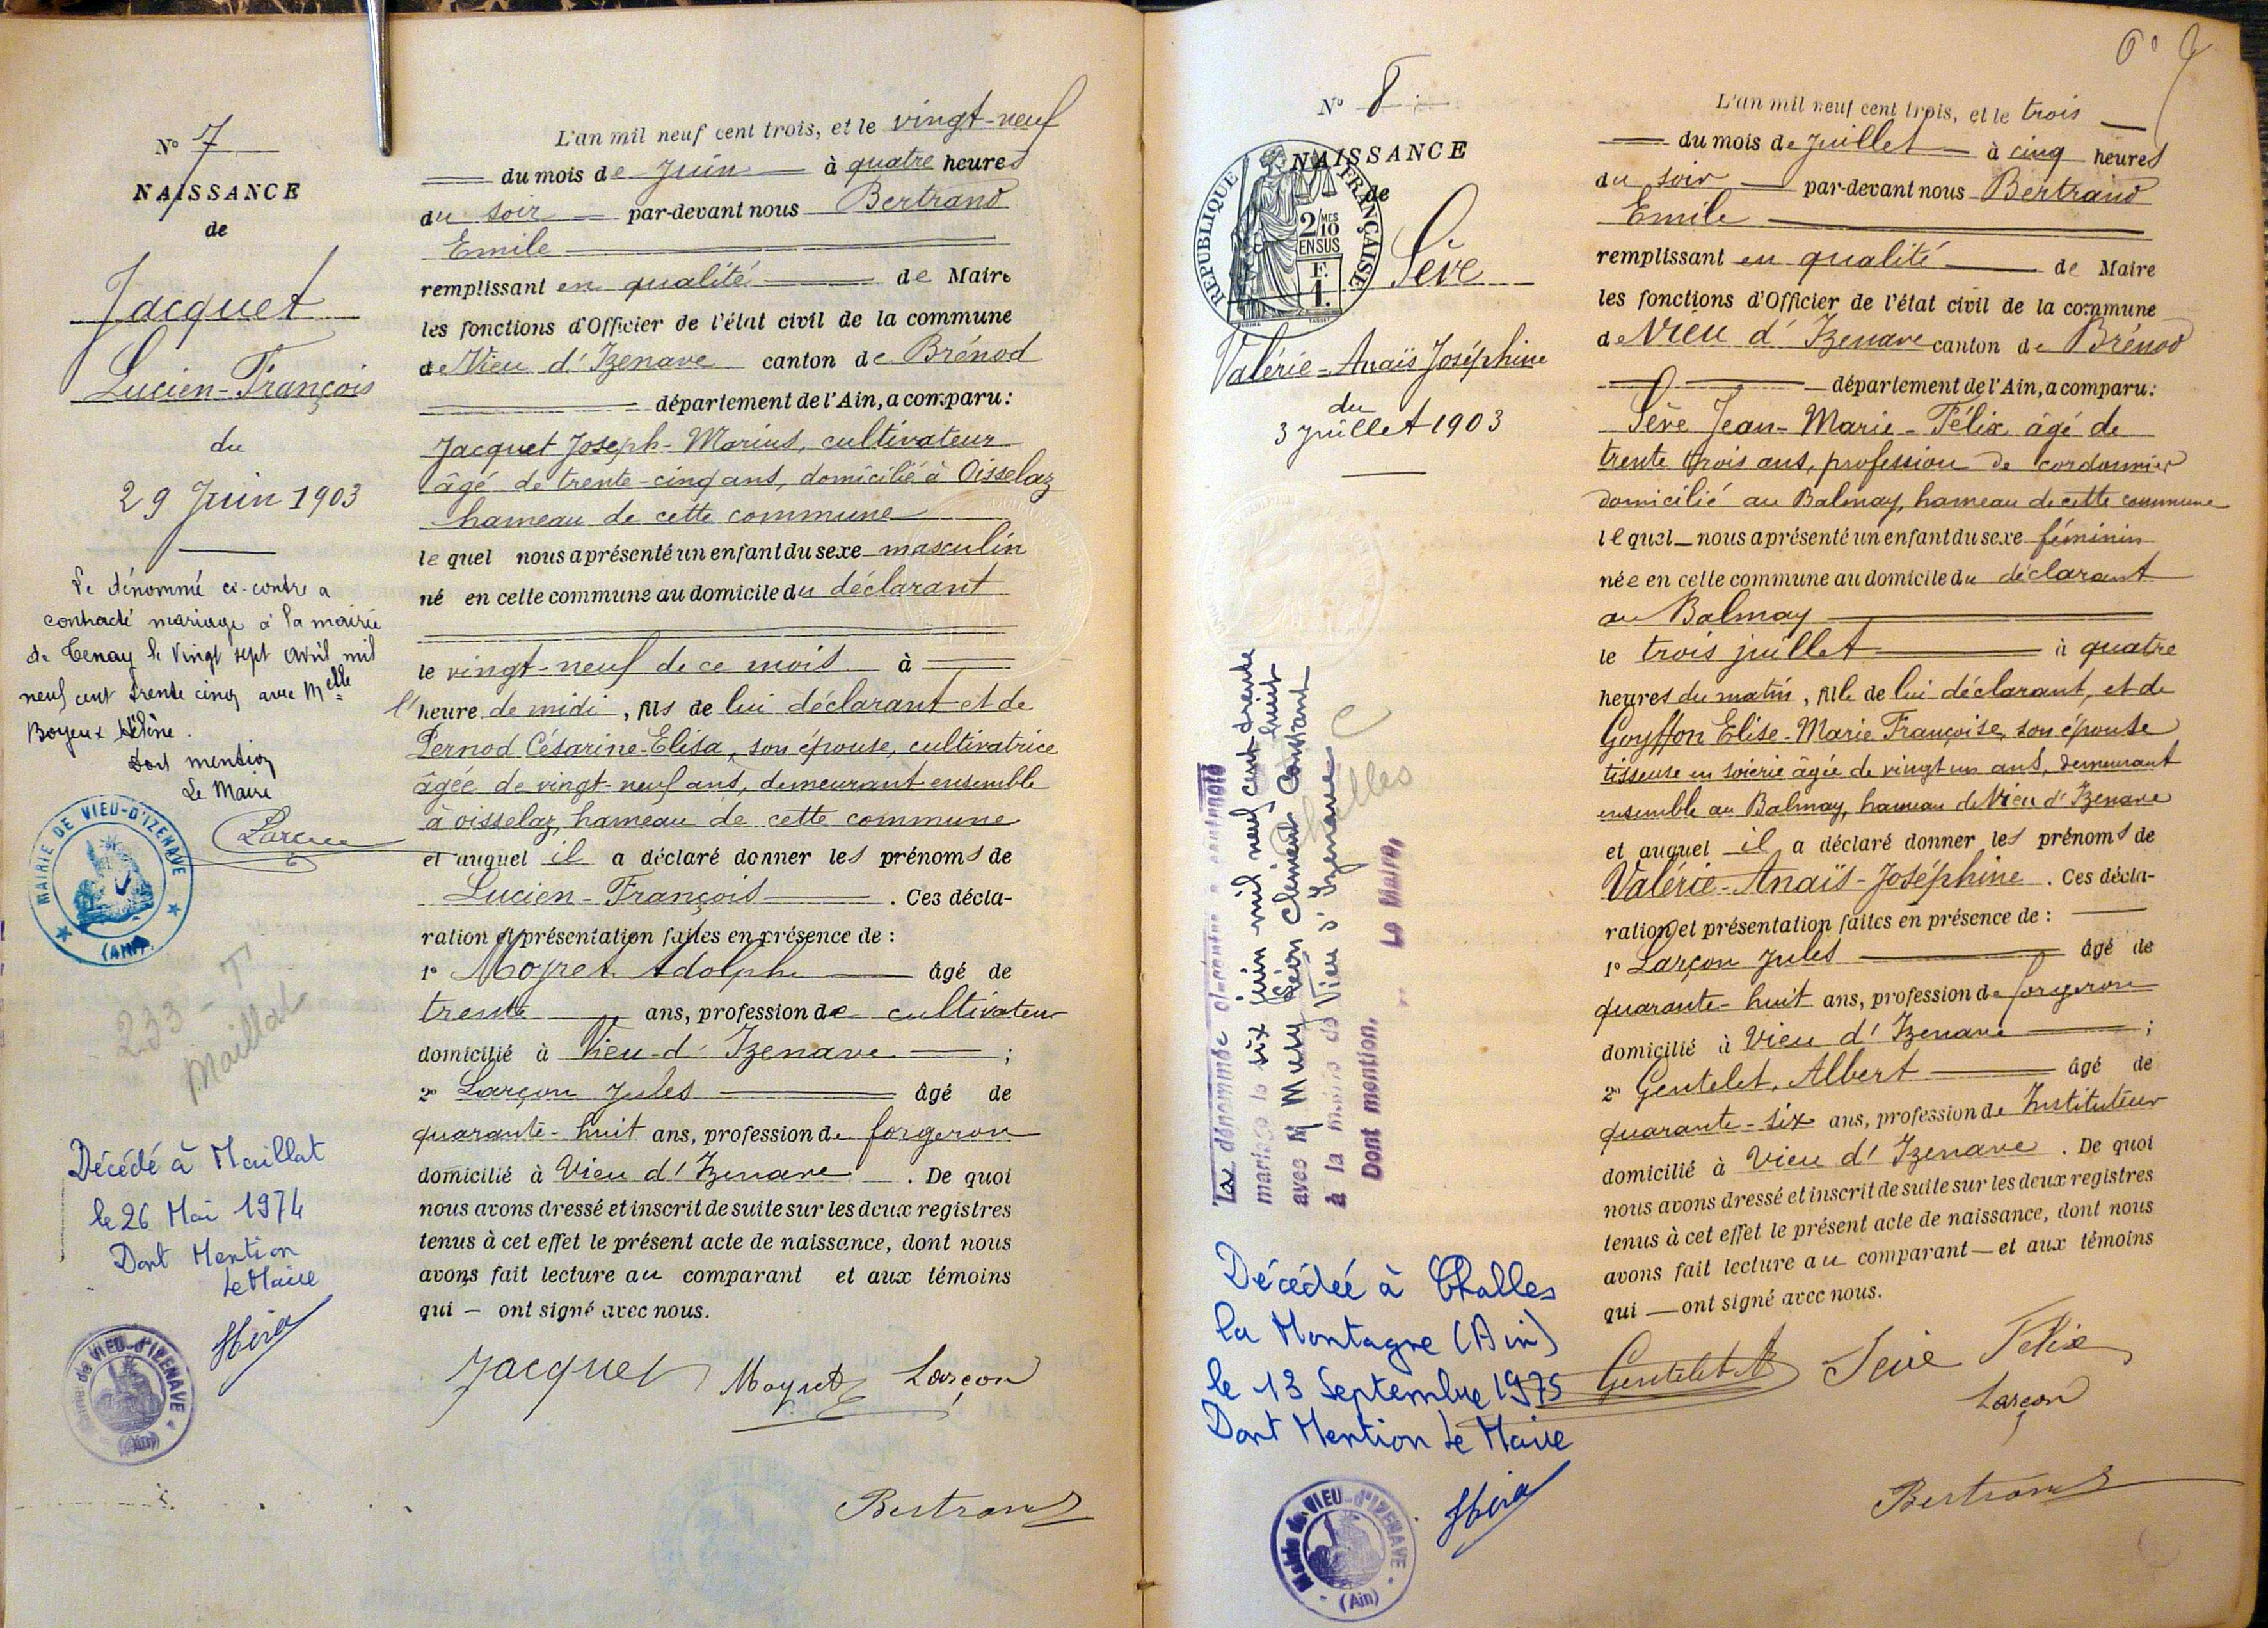 N° 7
NAISSANCE
de
Jacquet
Lucien-François
du
29 Juin 1903
Le dénommé ci-contre a
contracté mariage à la mairie
de Tenay le vingt sept avril mil
neuf cent trente cinq avec Melle
Boyeux Hélène.
Dont mention
Le Maire
MAIRIE DE VIEU-D'IZENAVE
(AIN)
233 - T
Maillat
Décédé à Maillat
le 26 Mai 1974
Dont Mention
Le Maire
Mairie de VIEU-D'IZENAVE
(Ain)
L'an mil neuf cent trois, et le vingt-neuf
du mois de Juin à quatre heures
du soir par-devant nous Bertrand
Emile
remplissant en qualité de Maire
les fonctions d'Officier de l'état civil de la commune
de Vieu d'Izenave canton de Brénod
département de l'Ain, a comparu:
Jacquet Joseph-Marius, cultivateur
âgé de trente-cinq ans, domicilié à Oisselaz
hameau de cette commune
lequel nous a présenté un enfant du sexe masculin
né en cette commune au domicile du déclarant
le vingt-neuf de ce mois à
l'heure de midi, fils de lui déclarant et de
Pernod Césarine-Elisa, son épouse, cultivatrice
âgée de vingt-neuf ans, demeurant ensemble
à oisselaz, hameau de cette commune
et auquel il a déclaré donner les prénoms de
Lucien-François. Ces décla-
ration et présentation faites en présence de:
1° Moyret Adolphe âgé de
trente ans, profession de cultivateur
domicilié à Vieu-d'Izenave;
2° Larçon Jules âgé de
quarante-huit ans, profession de forgeron
domicilié à Vieu d'Izenave. De quoi
nous avons dressé et inscrit de suite sur les deux registres
tenus à cet effet le présent acte de naissance, dont nous
avons fait lecture au comparant et aux témoins
qui — ont signé avec nous.
Jacquet Moyret Larçon
Bertrand
N° 8
NAISSANCE
de
REPUBLIQUE FRANÇAISE
2/10 MES
EN SUS
F.
1.
Sève
Valérie-Anaïs Joséphine
du
3 juillet 1903
La dénommée ci-contre a contracté
mariage le six juin mil neuf cent trente huit
avec M Muty Léon Clément Constant
à la mairie de Vieu d'Izenave
Dont mention, Le Maire,
Challes
Décédeé à Challes
la Montagne (Ain)
le 13 Septembre 1975
Dont Mention Le Maire
Mairie de VIEU-d'IZENAVE
(Ain)
L'an mil neuf cent trois, et le trois
du mois de Juillet à cinq heures
du soir par-devant nous Bertrand
Emile
remplissant en qualité de Maire
les fonctions d'Officier de l'état civil de la commune
de Vieu d'Izenave canton de Brénod
département de l'Ain, a comparu:
Sève Jean-Marie-Félix âgé de
trente trois ans, profession de cordonnier
domicilié au Balmay, hameau de cette commune
lequel nous a présenté un enfant du sexe féminin
née en cette commune au domicile du déclarant
au Balmay
le trois juillet à quatre
heures du matin, fille de lui déclarant, et de
Goyffon Elise-Marie Françoise, son épouse
tisseuse en soierie âgée de vingt un ans, demeurant
ensemble au Balmay, hameau de Vieu d'Izenave
et auquel il a déclaré donner les prénoms de
Valérie-Anaïs-Joséphine. Ces décla-
ration et présentation faites en présence de:
1° Larçon Jules âgé de
quarante-huit ans, profession de forgeron
domicilié à Vieu d'Izenave;
2° Gentelet, Albert âgé de
quarante-six ans, profession de Instituteur
domicilié à Vieu d'Izenave. De quoi
nous avons dressé et inscrit de suite sur les deux registres
tenus à cet effet le présent acte de naissance, dont nous
avons fait lecture au comparant — et aux témoins
qui — ont signé avec nous.
Gentelet A Sève Félix
Larçon
Bertrand